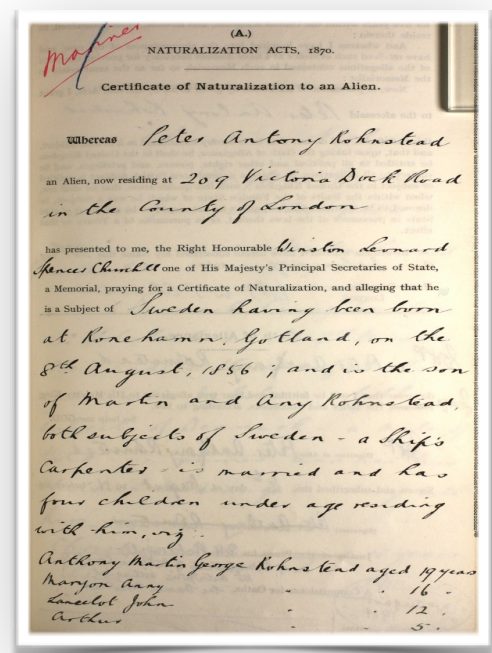 Mariner
(A.)
NATURALIZATION ACTS, 1870.
Certificate of Naturalization to an Alien.
Whereas Peter Antony Rohnstead
an Alien, now residing at 209 Victoria Dock Road
in the County of London
has presented to me, the Right Honourable Winston Leonard
Spencer Churchill one of His Majesty's Principal Secretaries of State,
a Memorial, praying for a Certificate of Naturalization, and alleging that he
is a Subject of Sweden having been born
at Ronehamn, Gotland, on the
8th August, 1856; and is the son
of Martin and Any Rohnstead,
both subjects of Sweden - a Ship's
Carpenter - is married and has
four children under age residing
with him, viz.
Anthony Martin George Rohnstead aged 19 years
Maryon Anny " " 16 "
Lancelot John " " 12 "
Arthur " " 5 "